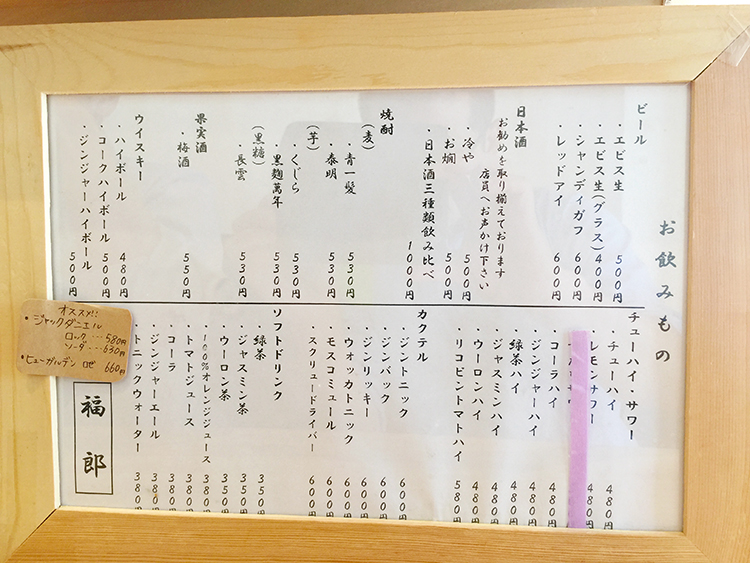 お飲みもの
ビール
・エビス生 500円
・エビス生(グラス) 400円
・シャンディガフ 600円
・レッドアイ 600円
日本酒
お勧めを取り揃えております
店員へお声かけ下さい
・冷や 500円
・お燗 500円
・日本酒三種類飲み比べ 1000円
焼酎
(麦)
・青一髪 530円
・泰明 530円
(芋)
・くじら 530円
・黒麹萬年 530円
(黒糖)
・長雲 530円
果実酒
・梅酒 550円
ウイスキー
・ハイボール 480円
・コークハイボール 500円
・ジンジャーハイボール 500円
チューハイ・サワー
・チューハイ 480円
・レモンサワー 480円
・コーラハイ 480円
・ジンジャーハイ 480円
緑茶ハイ 480円
・ジャスミンハイ 480円
・ウーロンハイ 480円
・リコピントマトハイ 580円
カクテル
・ジントニック 600円
・ジンバック 600円
・ジンリッキー 600円
・ウォッカトニック 600円
・モスコミュール 600円
・スクリュードライバー 600円
ソフトドリンク
緑茶 350円
・ジャスミン茶 350円
・ウーロン茶 350円
・100%オレンジジュース 380円
・トマトジュース 380円
・コーラ 380円
・ジンジャーエール 380円
・トニックウォーター 380円
福郎
オススメ!!
・ジャックダニエル
ロック…580円
ソーダ…630円
・ヒューガルデン ロゼ 660円